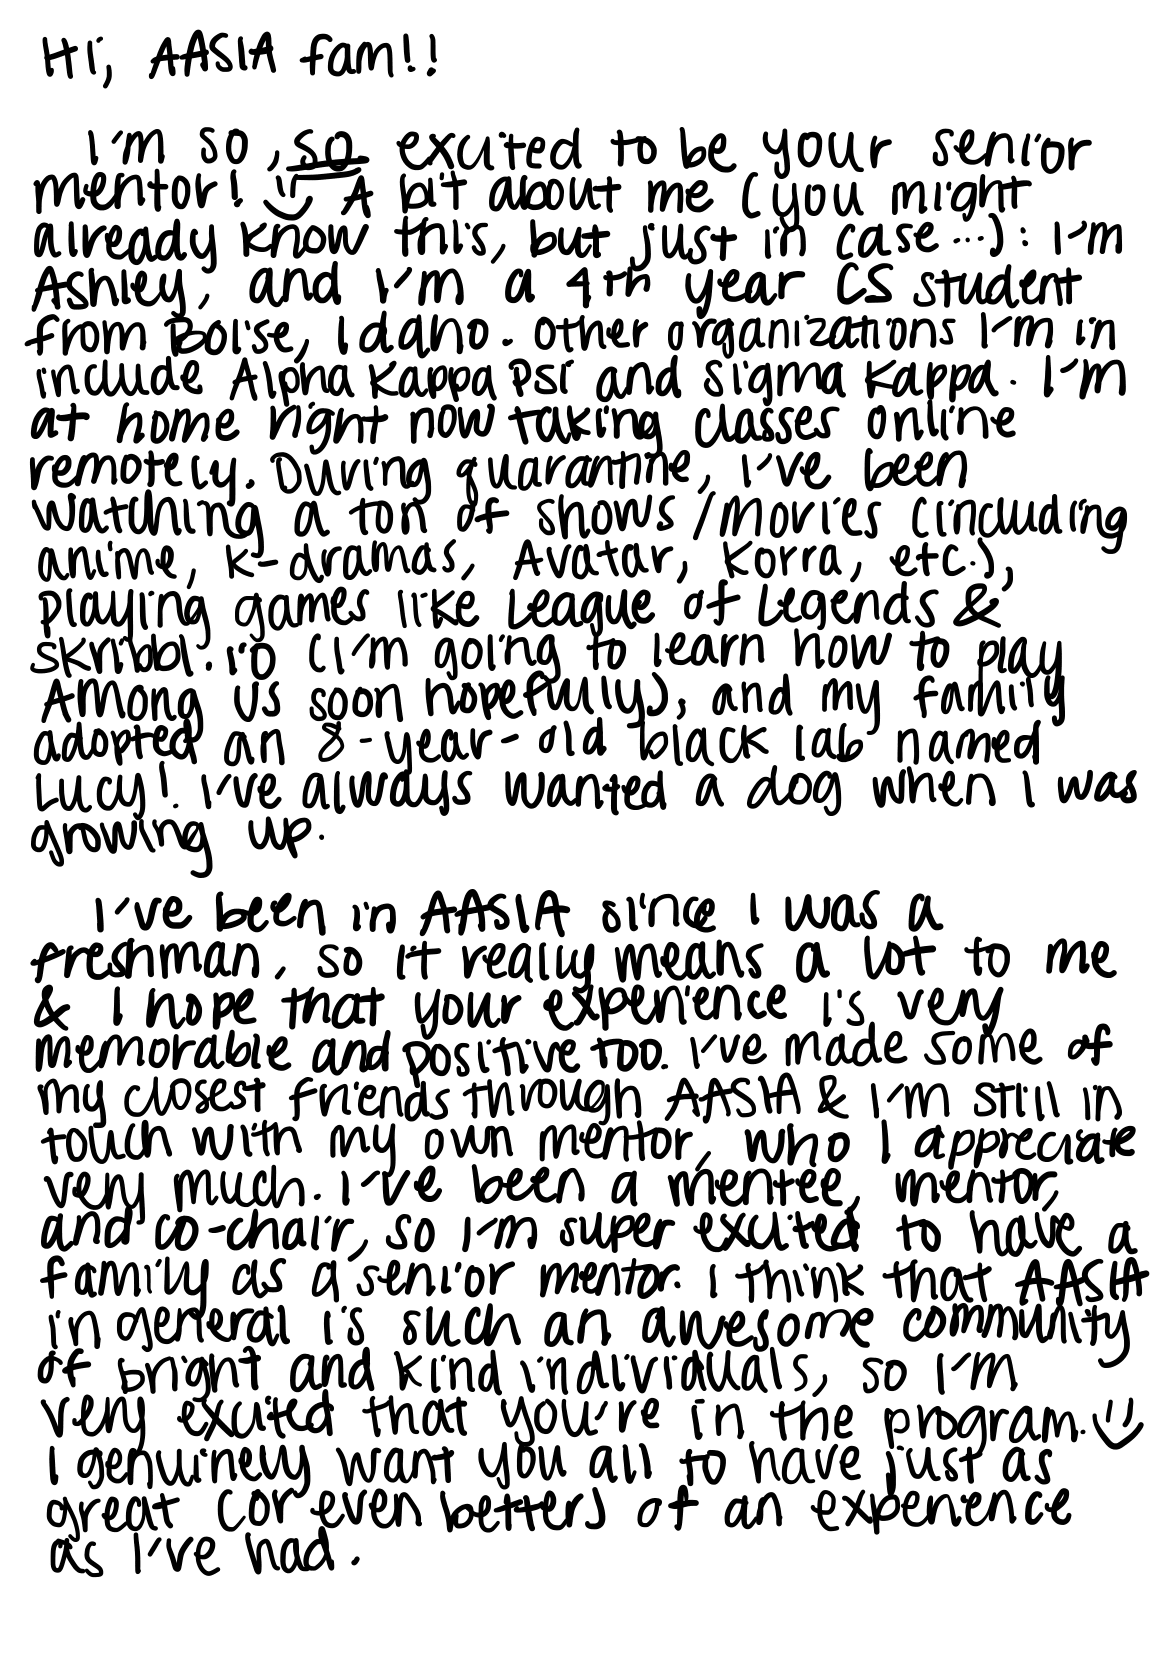 Hi, AASIA fam!!
I'm so, so excited to be your senior
mentor! A bit about me (you might
already know this, but just in case...): I'm
Ashley, and I'm a 4th year CS student
from Boise, Idaho. Other organizations I'm in
include Alpha Kappa Psi and Sigma Kappa. I'm
at home right now taking classes online
remotely. During quarantine, I've been
watching a ton of shows/movies (including
anime, k-dramas, Avatar, Korra, etc.),
playing games like League of Legends &
skribbl.io (I'm going to learn how to play
Among Us soon hopefully), and my family
adopted an 8-year-old black lab named
Lucy! I've always wanted a dog when I was
growing up.
I've been in AASIA since I was a
freshman, so it really means a lot to me
& I hope that your experience is very
memorable and positive too. I've made some of
my closest friends through AASIA & I'm still in
touch with my own mentor, who I appreciate
very much. I've been a mentee, mentor,
and co-chair, so I'm super excited to have a
family as a senior mentor. I think that AASIA
in general is such an awesome community
of bright and kind individuals, so I'm
very excited that you're in the program.
I genuinely want you all to have just as
great (or even better) of an experience
as I've had.